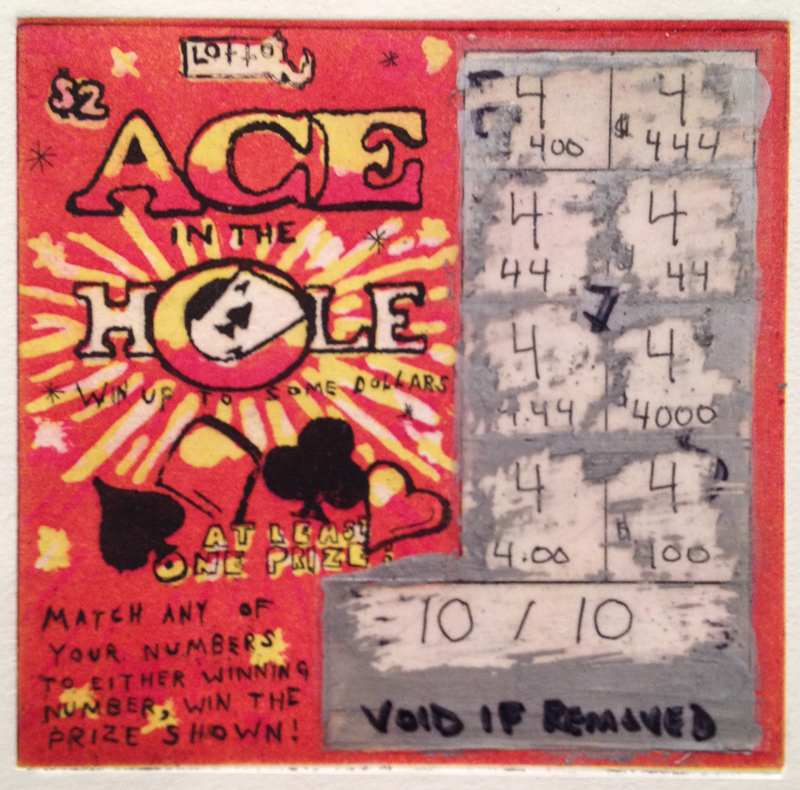 LOTTO
$2
ACE
IN THE
HOLE
WIN UP TO SOME DOLLARS
AT LEAST
ONE PRIZE!
MATCH ANY OF
YOUR NUMBERS
TO EITHER WINNING
NUMBER, WIN THE
PRIZE SHOWN!
4 4
400 $444
4 4
44 44
4 4
4.44 $4000
4 4
4.00 $100
10 / 10
VOID IF REMOVED